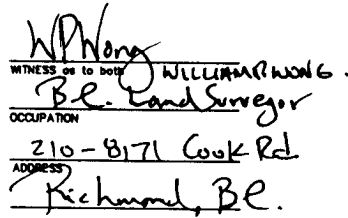 WPWong
WITNESS as to both WILLIAM P. WONG.
B.C. Land Surveyor
OCCUPATION
210-8171 Cook Rd
ADDRESS
Richmond, B.C.